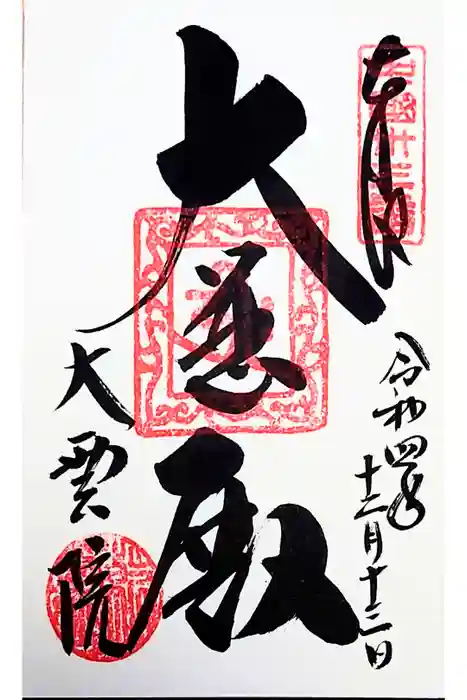 奉拝
令和四年
十二月十三日
大悲殿
大雲院